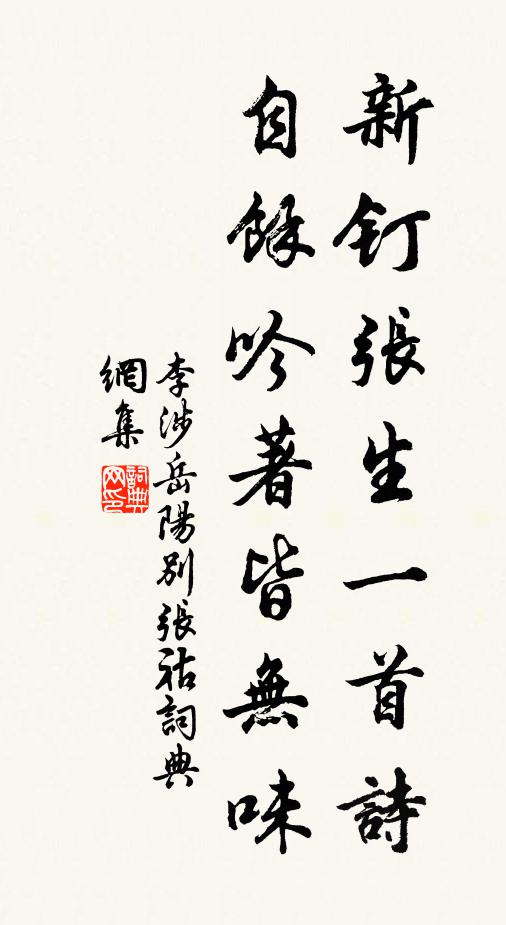 新釘張生一首詩
自餘吟著皆無味
李涉岳陽別張祜詞典
網集
詞典網印